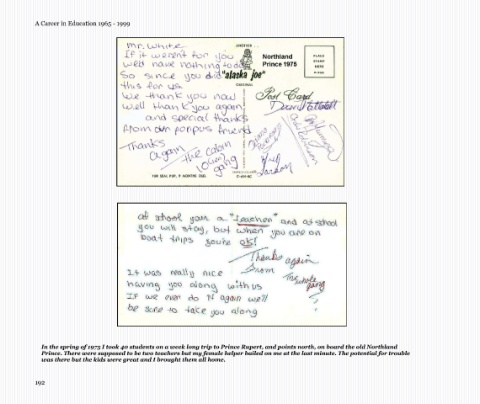 A Career in Education 1965 - 1999
Mr. White
If it weren't for you
we'd have nothing to do
So since you did
this for us
We thank you now
well thank you again
and special thanks
from our porpus friend
Thanks
again
the cabin
gang
"alaska joe"
Northland
Prince 1975
PLACE
STAMP
HERE
Post Card
FUR SEAL PUP, 9 MONTHS OLD.
at school your a "teacher" and at school
you will stay, but when you are on
boat trips you're ok!
Thanks again
from
the whole
gang
It was really nice
having you along with us
If we ever do it again we'll
be sure to take you along
In the spring of 1975 I took 40 students on a week long trip to Prince Rupert, and points north, on board the old Northland
Prince. There were supposed to be two teachers but my female helper bailed on me at the last minute. The potential for trouble
was there but the kids were great and I brought them all home.
192